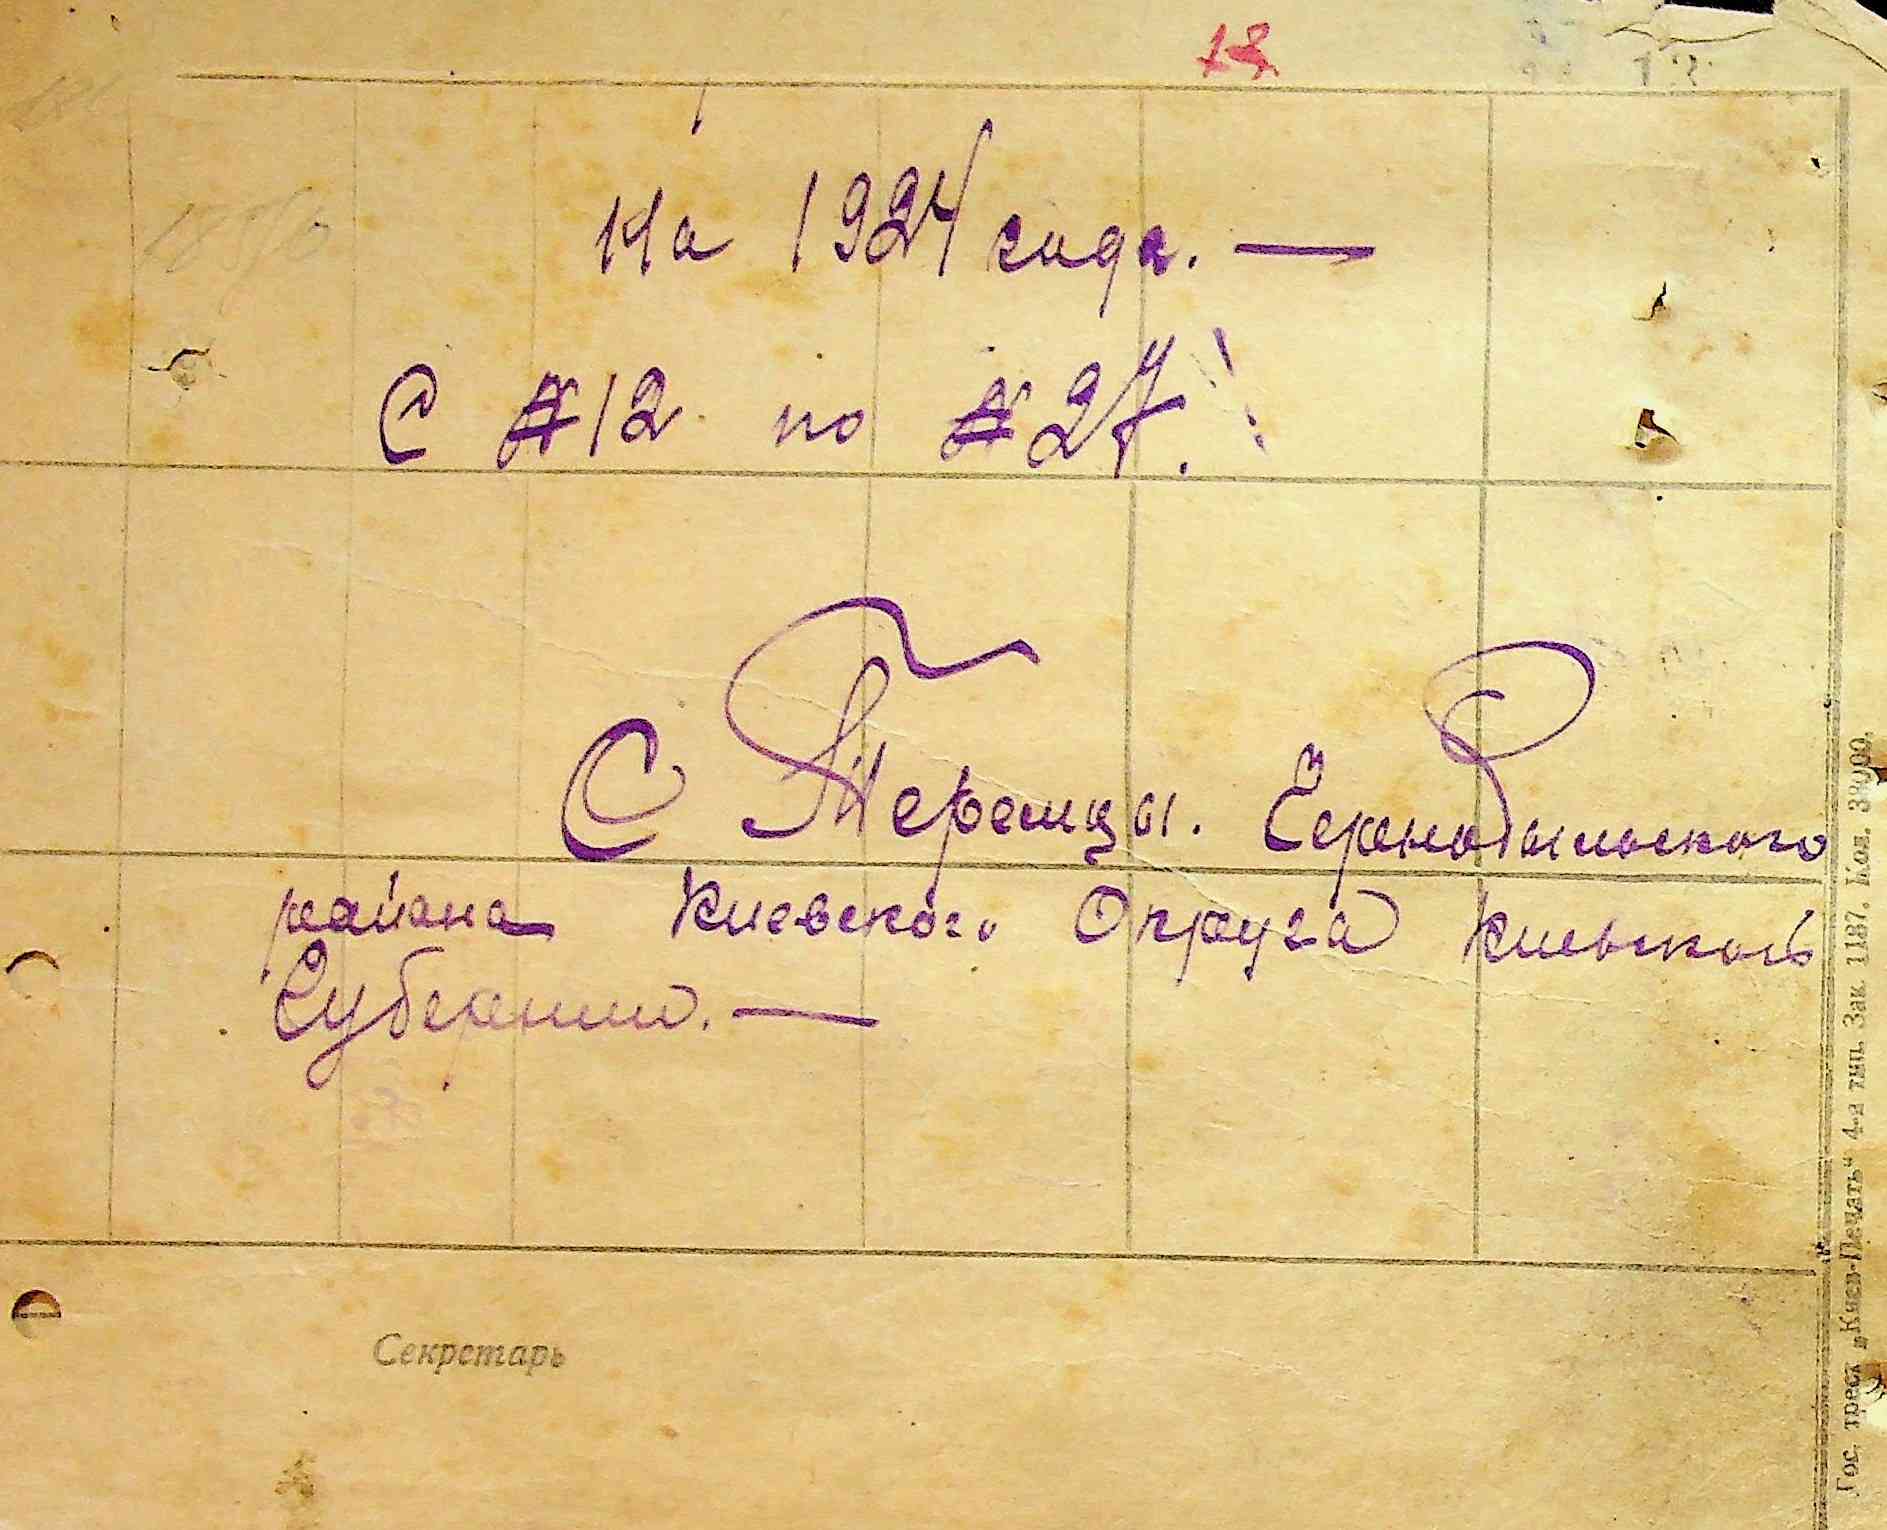 13
На 1924 года. —
С № 12 по № 27.
С Теремцы. Чернобыльского
района Киевского Округа Киевской
Губернии. —
Секретарь
Гос. трест „Киев-Печать“ 4-а тип. Зак. 1187. Кол.